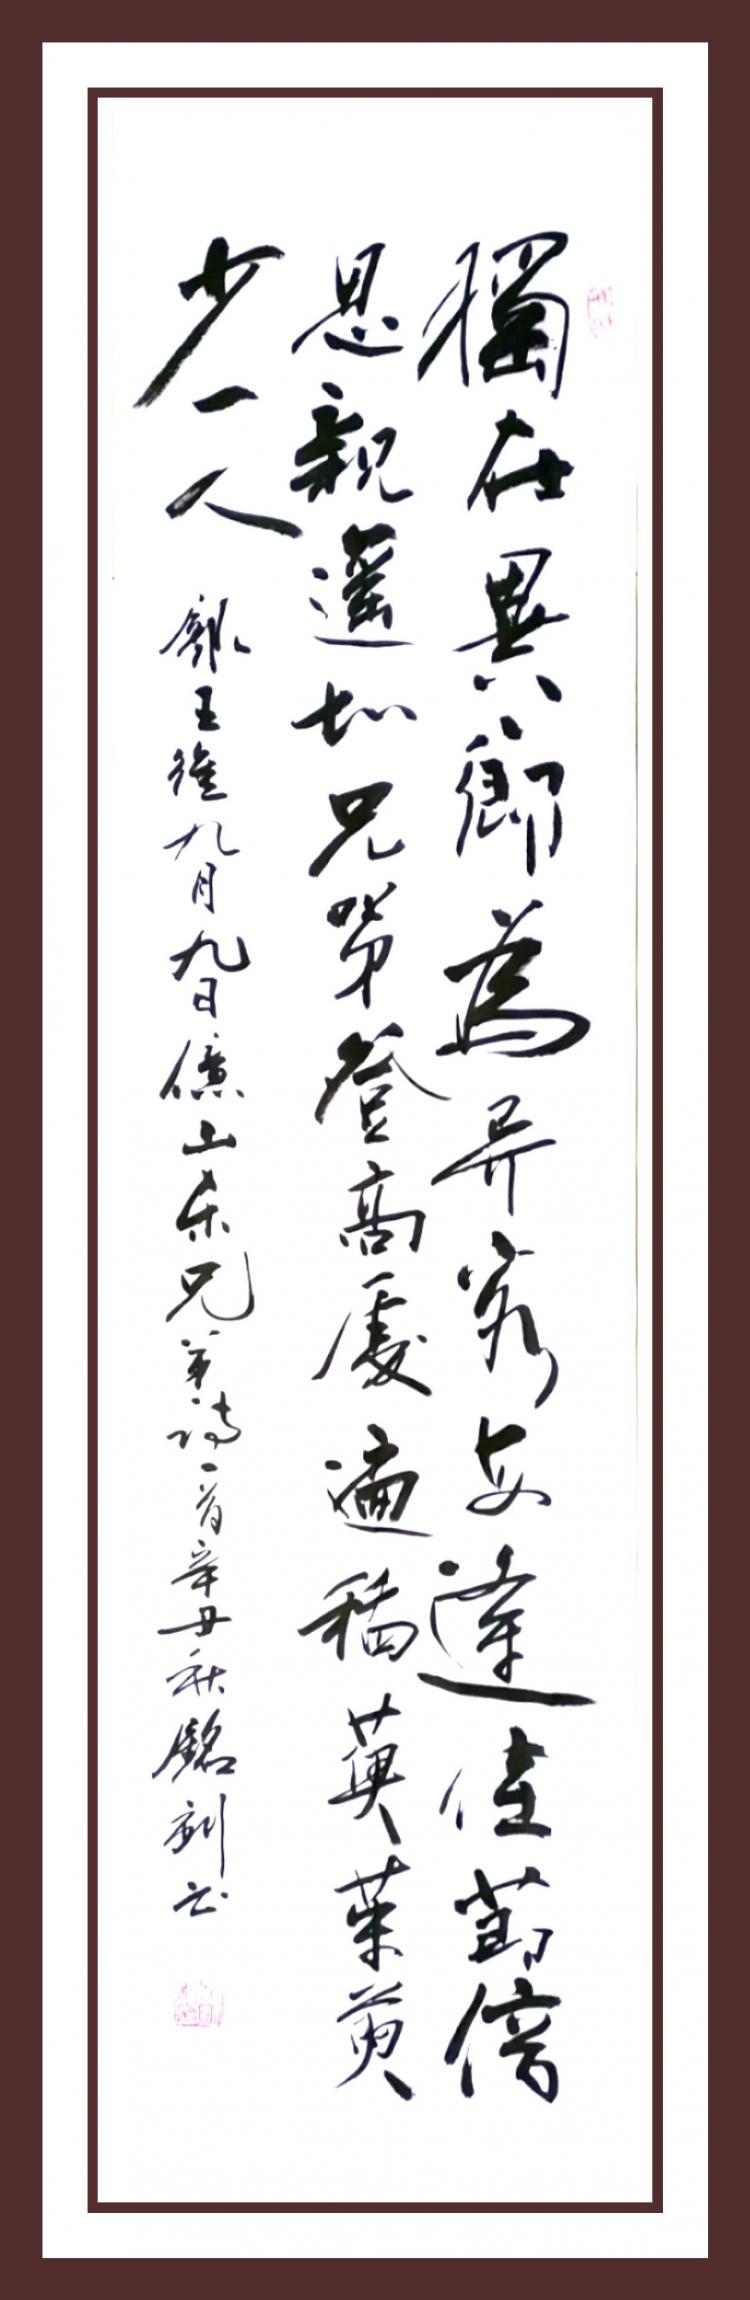 獨在異鄉為异客每逢佳節倍
思親遥知兄弟登高處遍插萸茱萸
少一人 錄王維九月九日憶山東兄弟詩一首辛丑秋銘书